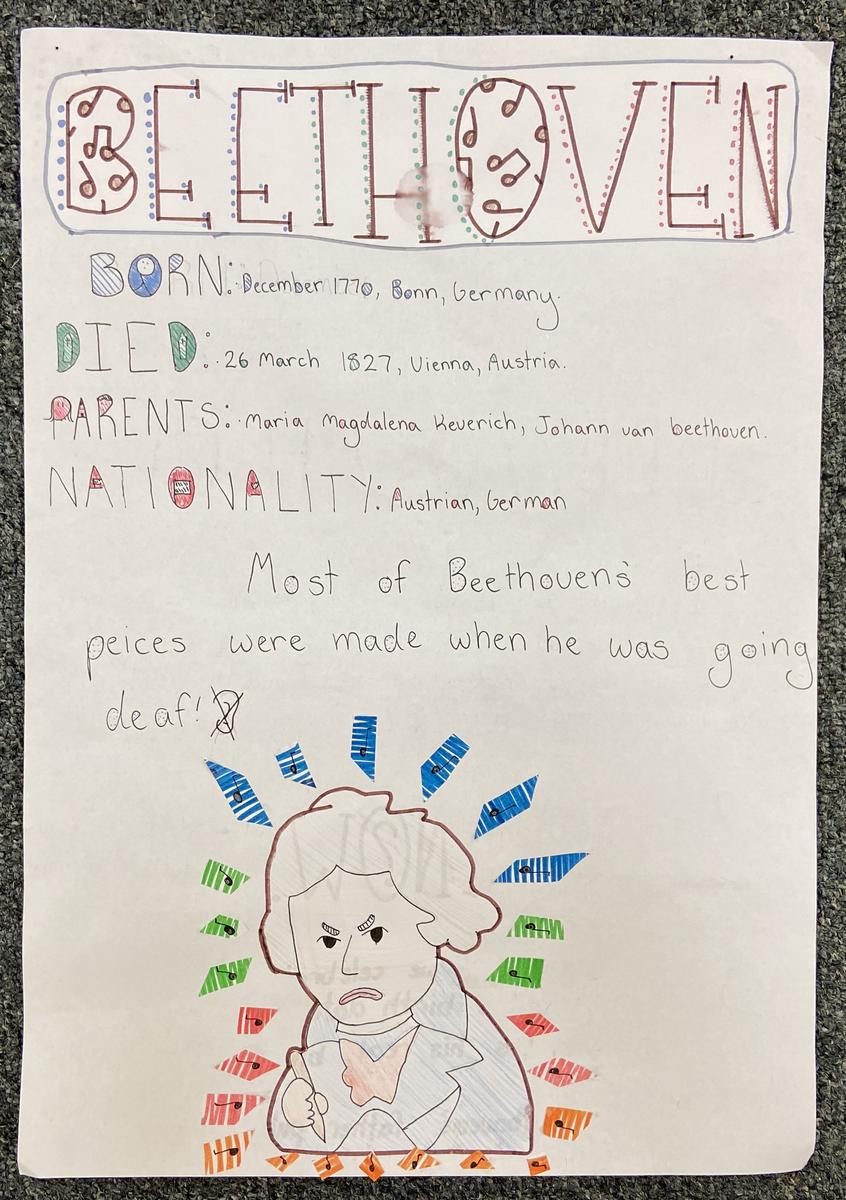 BEETHOVEN
BORN: December 1770, Bonn, Germany.
DIED: 26 March 1827, Vienna, Austria.
PARENTS: Maria Magdalena Keverich, Johann van beethoven.
NATIONALITY: Austrian, German
Most of Beethovens' best
peices were made when he was going
deaf!